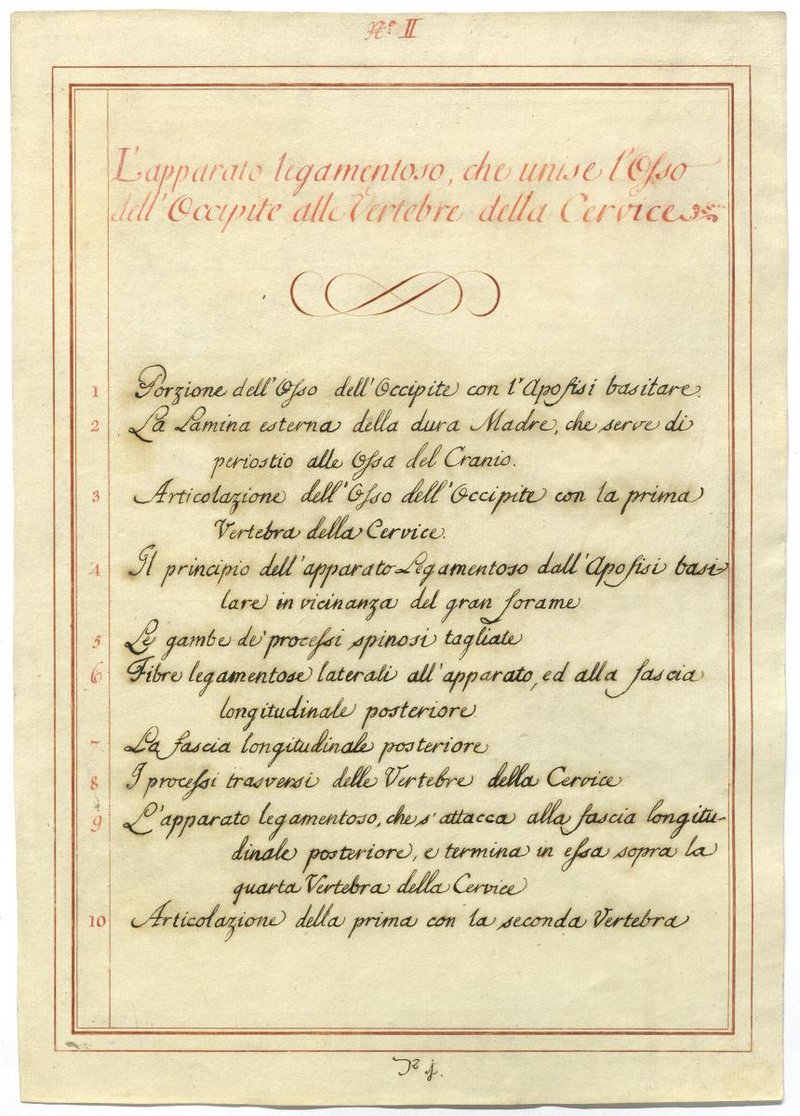 N.º II
L'apparato legamentoso, che unise l'Osso
dell'Occipite alle Vertebre della Cervice
1 Porzione dell'Osso dell'Occipite con l'Apofisi basilare.
2 La Lamina esterna della dura Madre, che serve di
periostio alle Ossa del Cranio.
3 Articolazione dell'Osso dell'Occipite con la prima
Vertebra della Cervice.
4 Il principio dell'apparato Legamentoso dall'Apofisi basi
lare in vicinanza del gran forame
5 Le gambe de' processi spinosi tagliate
6 Fibre legamentose laterali all'apparato, ed alla fascia
longitudinale posteriore
7 La fascia longitudinale posteriore
8 I processi trasversi delle Vertebre della Cervice
9 L'apparato legamentoso, che s'attacca alla fascia longitu-
dinale posteriore, e termina in essa sopra la
quarta Vertebra della Cervice
10 Articolazione della prima con la seconda Vertebra